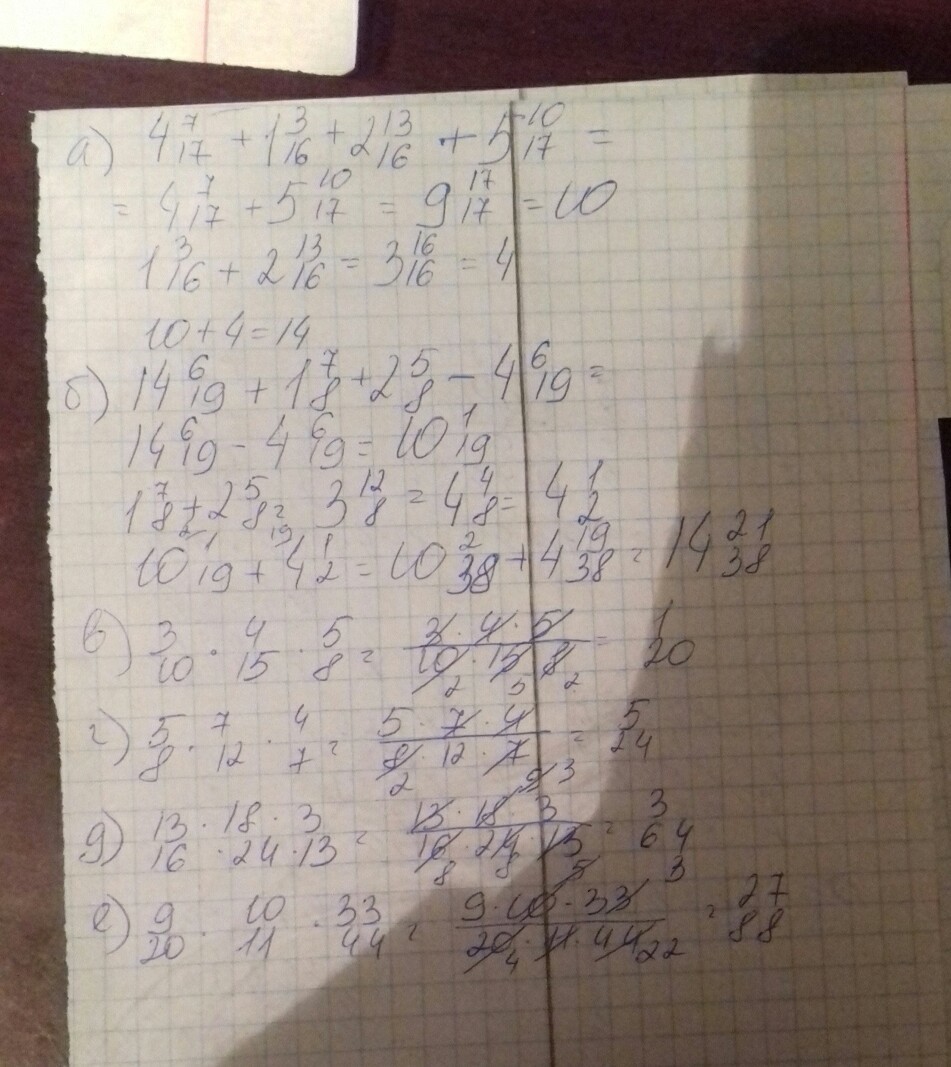 а) 4 7/17 + 1 3/16 + 2 13/16 + 5 10/17 =
= 4 7/17 + 5 10/17 = 9 17/17 = 10
1 3/16 + 2 13/16 = 3 16/16 = 4
10 + 4 = 14
б) 14 6/19 + 1 7/8 + 2 5/8 - 4 6/19 =
14 6/19 - 4 6/19 = 10 1/19
1 7/8 + 2 5/8 = 3 12/8 = 4 4/8 = 4 1/2
10 1/19 + 4 1/2 = 10 2/38 + 4 19/38 = 14 21/38
в) 3/10 · 4/15 · 5/8 = 3 · 4 · 5 / 10 · 15 · 8 = 1/20
г) 5/8 · 7/12 · 4/7 = 5 · 7 · 4 / 8 · 12 · 7 = 5/24
д) 13/16 · 18/24 · 3/13 = 13 · 18 · 3 / 16 · 24 · 13 = 3/64
е) 9/20 · 10/11 · 33/44 = 9 · 10 · 33 / 20 · 11 · 44 = 27/88